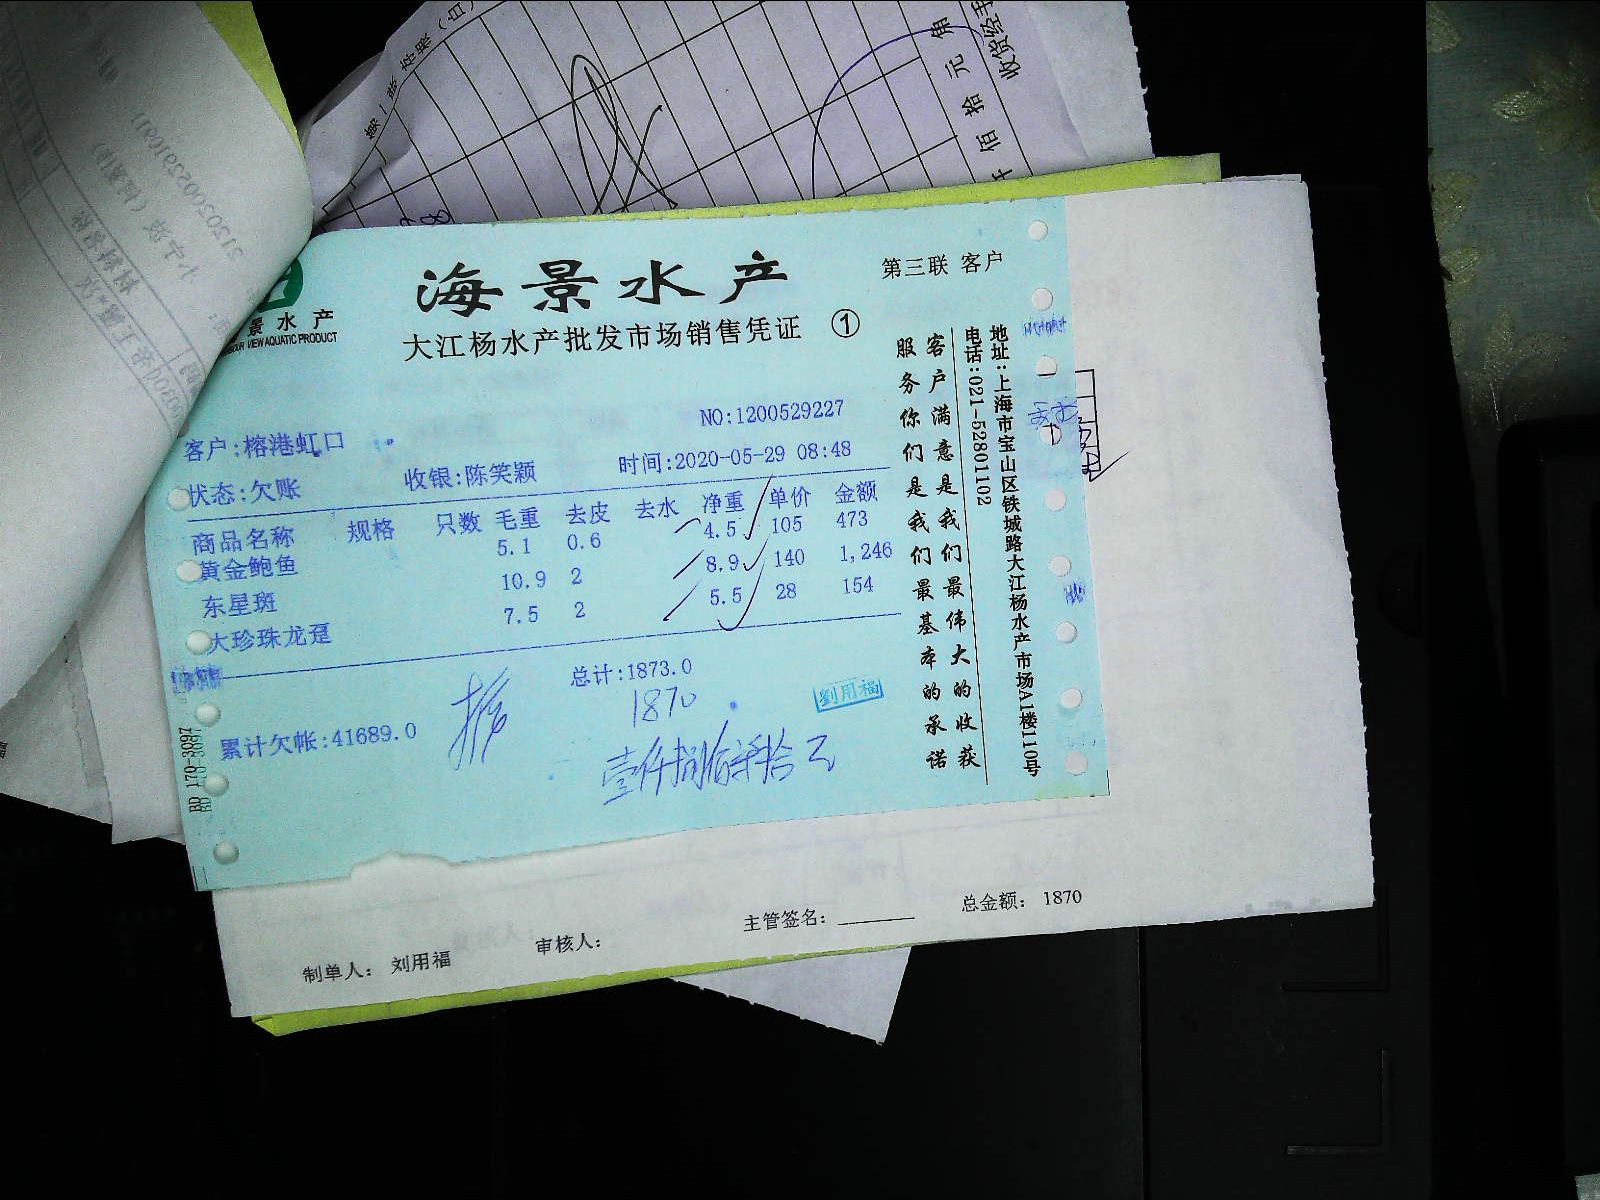 海景水产
第三联 客户
景水产
VIEW AQUATIC PRODUCT
大江杨水产批发市场销售凭证 ①
NO:1200529227
客户:榕港虹口
状态:欠账 收银:陈笑颖 时间:2020-05-29 08:48
商品名称 规格 只数 毛重 去皮 去水 净重 单价 金额
黄金鲍鱼 5.1 0.6 4.5 105 473
东星斑 10.9 2 8.9 140 1,246
大珍珠龙趸 7.5 2 5.5 28 154
总计:1873.0
1870
劉用福
累计欠帐:41689.0
壹仟捌佰柒拾元
客户满意是我们最伟大的收获
服务你们是我们最基本的承诺
地址:上海市宝山区铁城路大江杨水产市场A1楼110号
电话:021-52801102
BD 170-3097
制单人: 刘用福 审核人: 主管签名: 总金额: 1870
佰拾元角